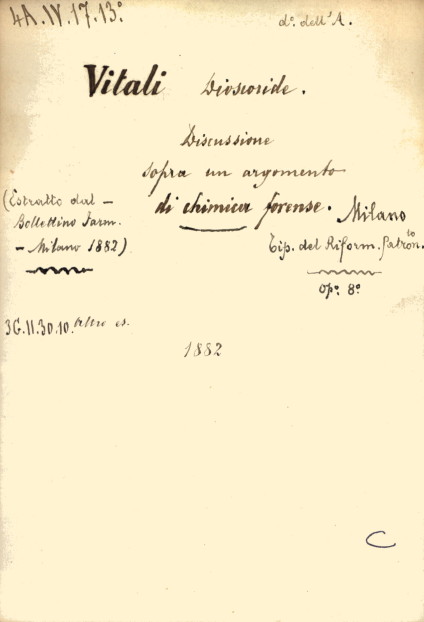 4A.IV.17.13°
d°. dell'A.
Vitali Dioscoride.
Discussione
sopra un argomento
di chimica forense.
(Estratto dal -
Bollettino Farm.
- Milano 1882)
Milano
Tip. del Riform. Patron.to
Op°. 8°
3G.II.30.10. altro es.
1882
C